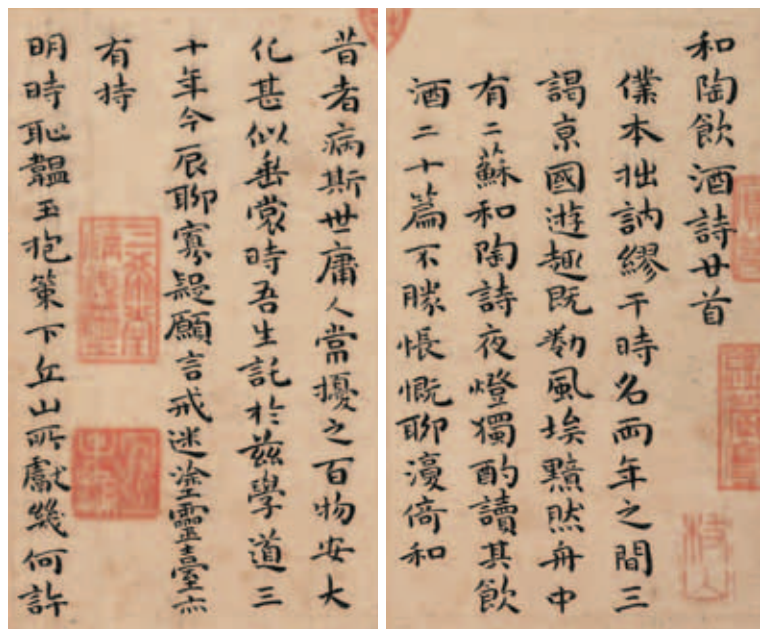 和陶飲酒詩廿首
僕本拙訥繆干時名両年之間三
謁京國遊趣既勌風埃黯然舟中
有二蘇和陶詩夜燈獨酌讀其飲
酒二十篇不勝悵慨聊倚和
枝山
昔者病斯世庸人當擾之百物安大
化甚似垂裳時吾生託於兹學道三
十年今辰聊寡疑願言戒迷塗靈臺亦
有持
三希堂
精鑑璽
明時恥韞玉抱策下丘山所獻幾何許